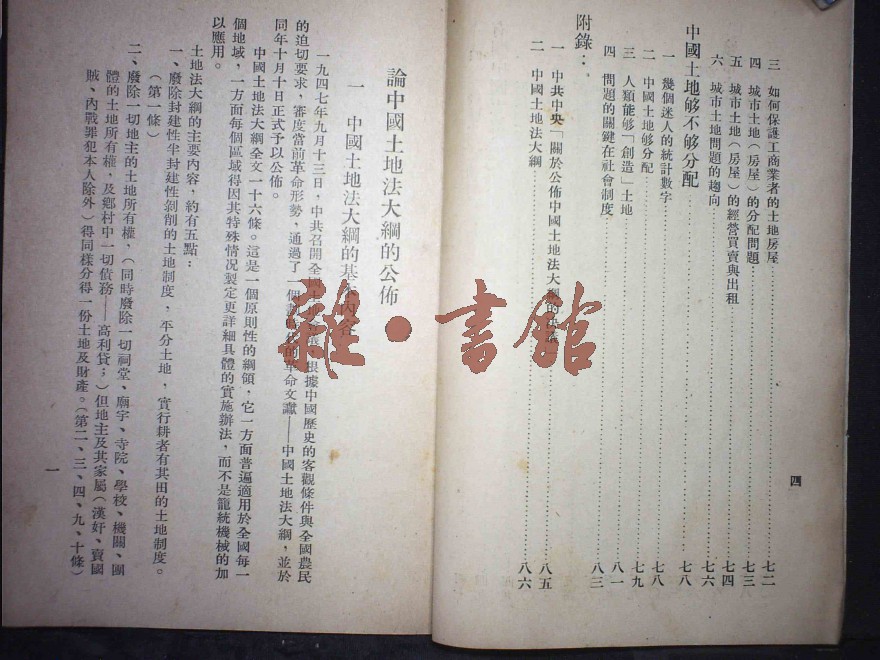 三　如何保護工商業者的土地房屋……七二
四　城市土地（房屋）的分配問題……七三
五　城市土地（房屋）的經營買賣與出租……七四
六　城市土地問題的趨向……七六
中國土地够不够分配……七八
一　幾個迷人的統計數字
二　中國土地够分配……七八
三　人類能够「創造」土地……七九
四　問題的關鍵在社會制度……八一
附錄：……八三
一　中共中央「關於公佈中國土地法大綱的……八五
二　中國土地法大綱……八六
四
論中國土地法大綱的公佈
一　中國土地法大綱的基本內容
一九四七年九月十三日，中共召開全國土地會議，根據中國歷史的客觀條件與全國農民
的迫切要求，審度當前革命形勢，通過了一個的革命文獻——中國土地法大綱，並於
同年十月十日正式予以公佈。
中國土地法大綱全文一十六條。這是一個原則性的綱領，它一方面普遍適用於全國每一
個地域，一方面每個區域得因其特殊情况製定更詳細具體的實施辦法，而不是籠統機械的加
以應用。
土地法大綱的主要內容，約有五點：
一、廢除封建性半封建性剝削的土地制度，平分土地，實行耕者有其田的土地制度。
（第一條）
二、廢除一切地主的土地所有權，（同時廢除一切祠堂、廟宇、寺院、學校、機關、團
體的土地所有權，及鄉村中一切債務——高利貸；）但地主及其家屬（漢奸、賣國
賊、內戰罪犯本人除外）得同樣分得一份土地及財產。（第二、三、四、九、十條）
一
雜·書館